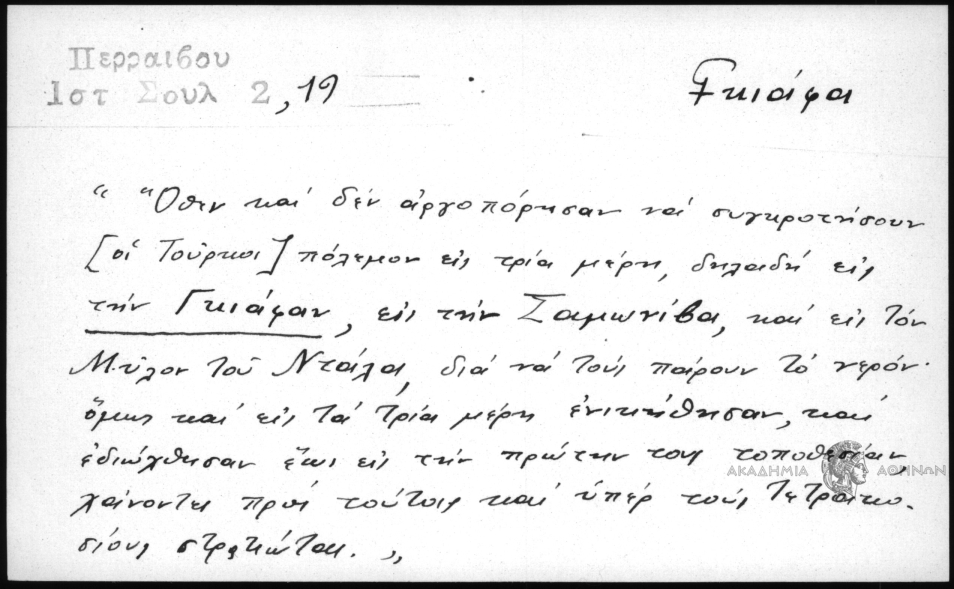 Περραιβου
Ιστ Σουλ 2,19
Γκιάφα
" Ὅθεν καί δέν ἀργοπόρησαν νά συγκροτήσουν
[οἱ Τοῦρκοι] πόλεμον εἰς τρία μέρη, δηλαδή εἰς
τήν Γκιάφαν, εἰς τήν Σαμωνίβα, καί εἰς τόν
Μύλον τοῦ Ντάλα, διά νά τούς πάρουν τό νερόν·
ὅμως καί εἰς τά τρία μέρη ἐνικήθησαν, καί
ἐδιώχθησαν ἕως εἰς τήν πρώτην τους τοποθεσίαν,
χάνοντες πρός τούτοις καί ὑπέρ τούς τετρακο-
σίους στρατιώτας. "
ΑΚΑΔΗΜΙΑ ΑΘΗΝΩΝ